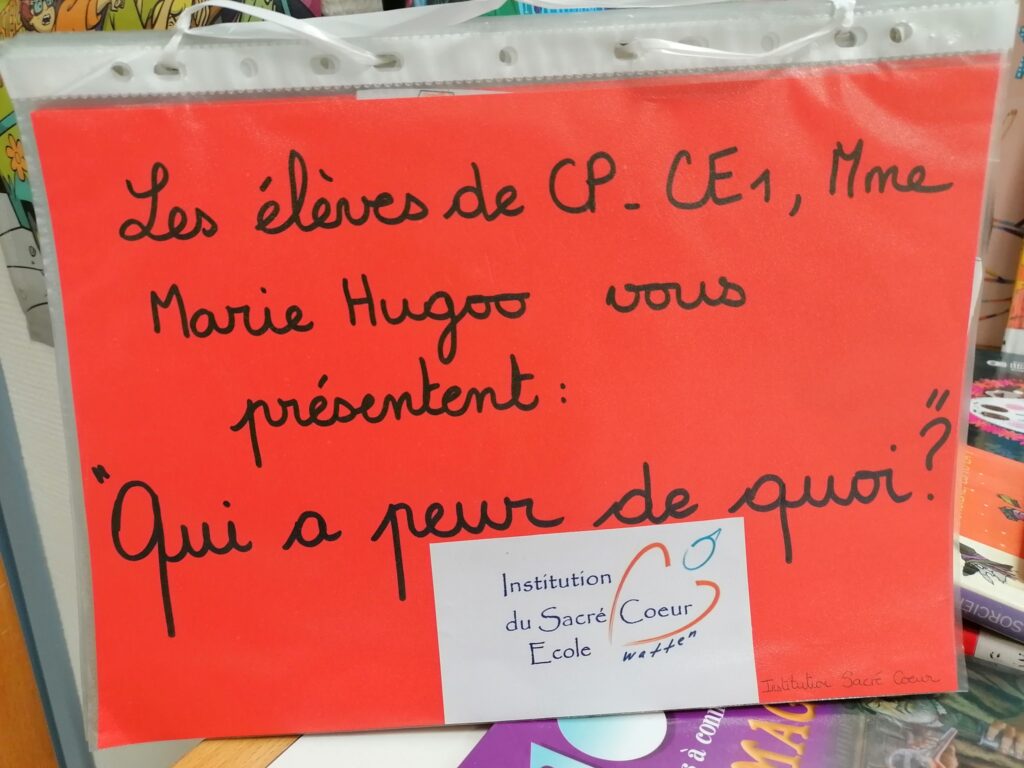 Les élèves de CP_ CE1, Mme
Marie Hugoo vous
présentent :
"Qui a peur de quoi ?"
Institution
du Sacré Coeur
Ecole
watten
Institution Sacré Coeur
SORCIE
s à conn
MAG